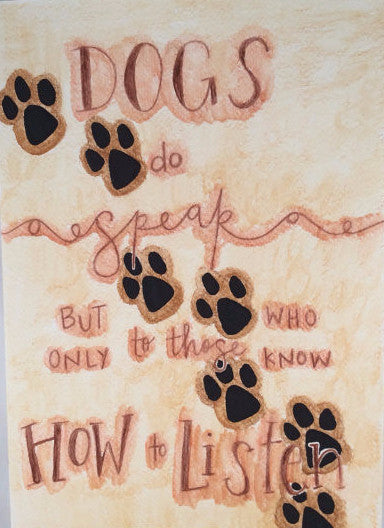 DOGS
do
speak
BUT ONLY to those WHO KNOW
HOW to Listen